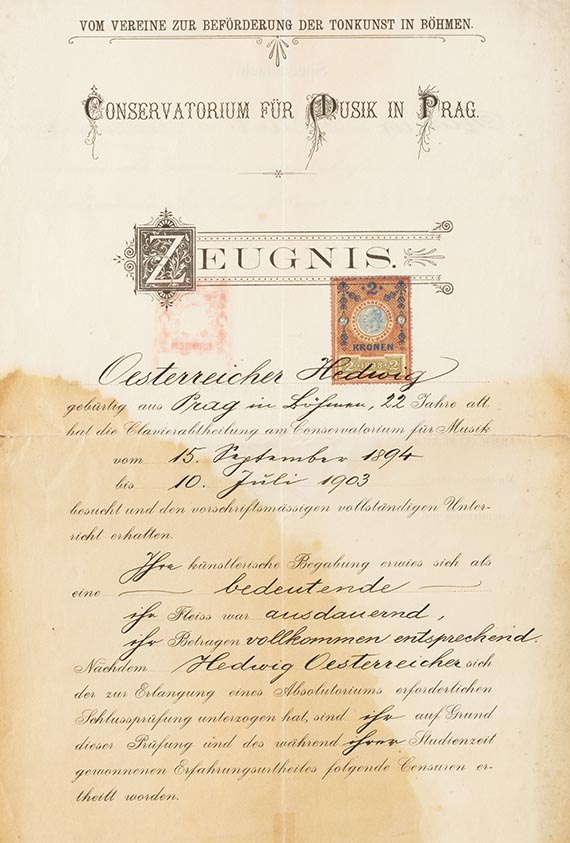 VOM VEREINE ZUR BEFÖRDERUNG DER TONKUNST IN BÖHMEN.
CONSERVATORIUM FÜR MUSIK IN PRAG.
ZEUGNIS.
2
2 2
KRONEN
Oesterreicher Hedwig
gebürtig aus Prag in Böhmen, 22 Jahre alt
hat die Clavierabtheilung am Conservatorium für Musik
vom 15. September 1894
bis 10. Juli 1903
besucht und den vorschriftsmässigen vollständigen Unter-
richt erhalten.
Ihre künstlerische Begabung erwies sich als
eine bedeutende
ihr Fleiss war ausdauernd,
ihr Betragen vollkommen entsprechend.
Nachdem Hedwig Oesterreicher sich
der zur Erlangung eines Absolutoriums erforderlichen
Schlussprüfung unterzogen hat, sind ihr auf Grund
dieser Prüfung und des während ihrer Studienzeit
gewonnenen Erfahrungsurtheiles folgende Censuren er-
theilt worden.